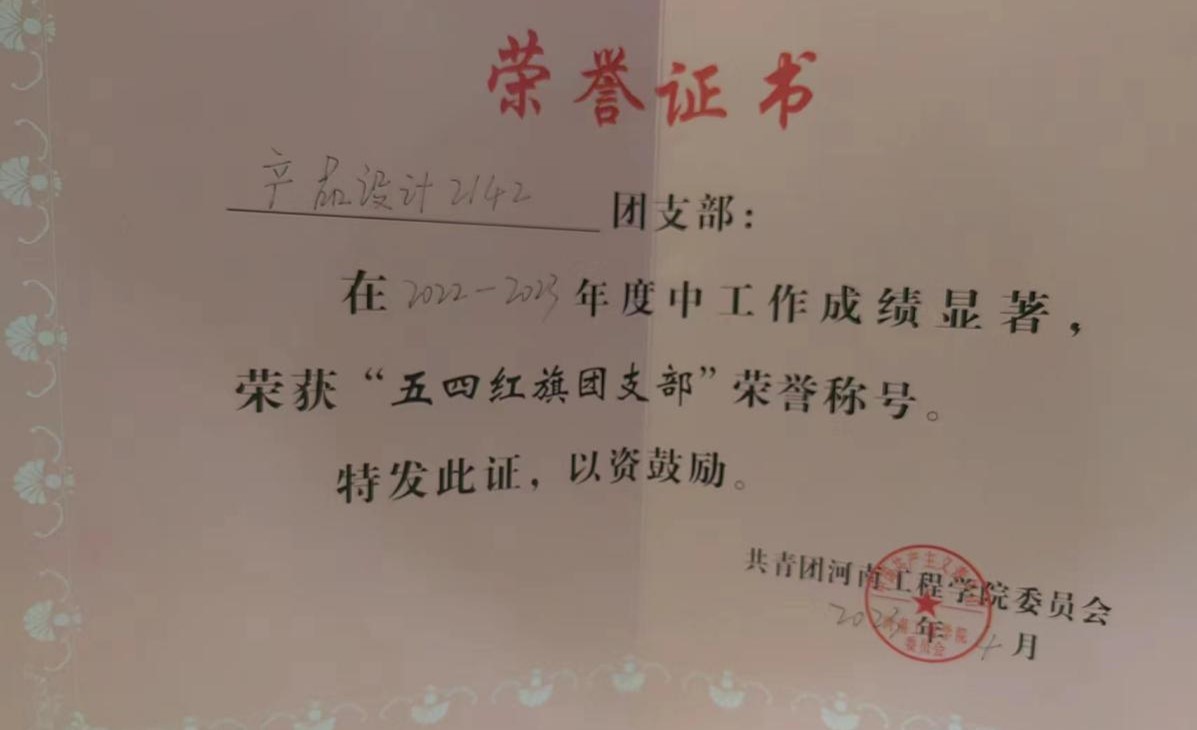 荣誉证书
产品设计2142团支部：
在2022-2023年度中工作成绩显著，
荣获“五四红旗团支部”荣誉称号。
特发此证，以资鼓励。
共青团河南工程学院委员会
2023年4月